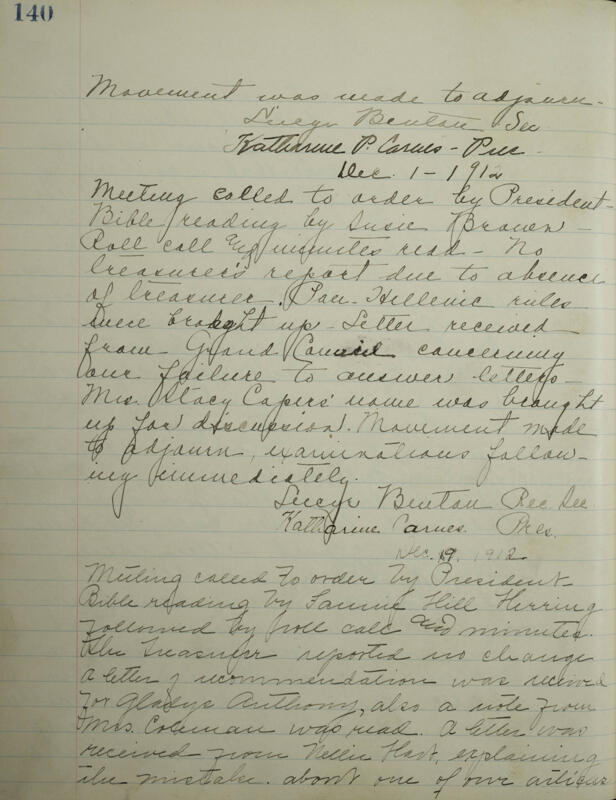 140
Movement was made to adjourn -
Lucye Benton Sec
Katharine P. Carnes - Pres -
Dec. 1 - 1912
Meeting called to order by President -
Bible reading by Susie Brown -
Roll call and minutes read - No
treasurer's report due to absence
of treasurer. Pan-Hellenic rules
were brought up - Letter received
from Grand Council concerning
our failure to answer letters -
Mrs. Stacy Capers' name was brought
up for discussion. Movement made
to adjourn, examinations follow-
ing immediately.
Lucye Benton Rec. Sec
Katharine Carnes. Pres.
Dec. 19, 1912
Meeting called to order by President
Bible reading by Fannie Hill Herring
followed by roll call and minutes.
The treasurer reported no change
a letter of recommendation was received
for Gladys Anthony, also a note from
Mrs. Coleman was read. A letter was
received from Nellie Hart, explaining
the mistake about one of our articles